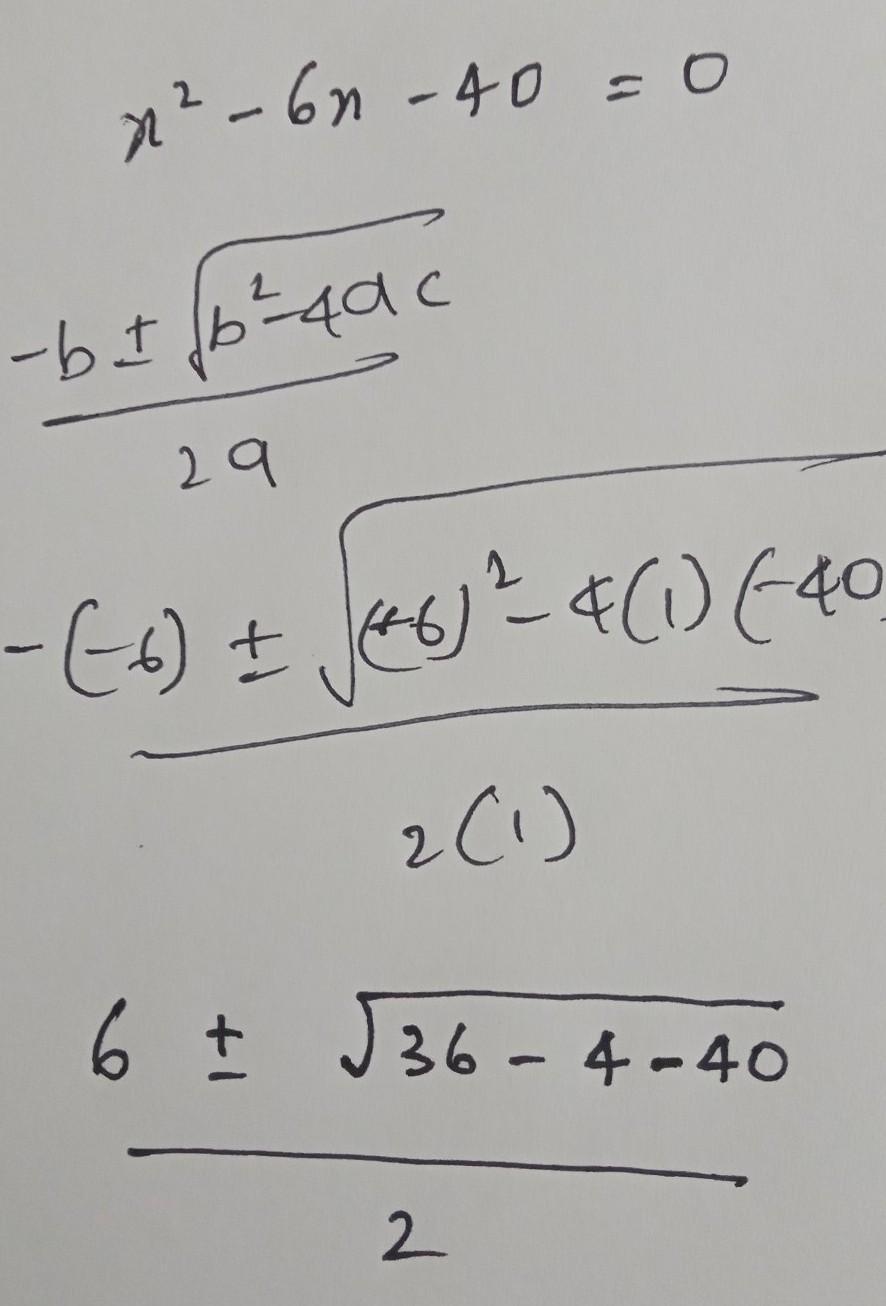 x² - 6x - 40 = 0
-b ± √b²-4ac
2a
-(-6) ± √(-6)² - 4(1)(-40
2(1)
6 ± √36 - 4 - 40
2